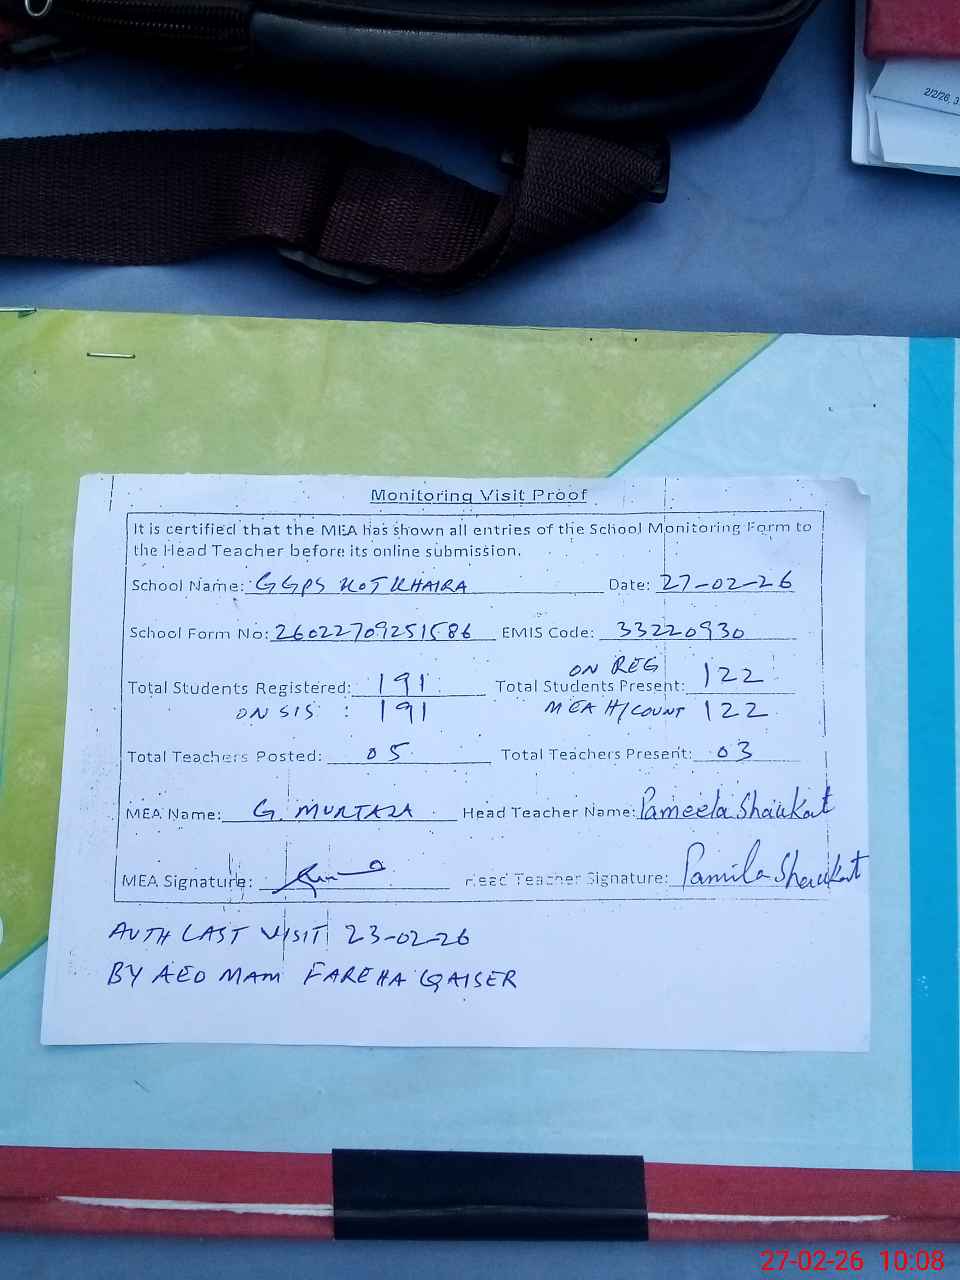 2/2/26, 3
Monitoring Visit Proof
It is certified that the MEA has shown all entries of the School Monitoring Form to
the Head Teacher before its online submission.
School Name: GGPS KOT KHAIRA Date: 27-02-26
School Form No: 26022709251586 EMIS Code: 33220930
ON REG
Total Students Registered: 191 Total Students Present: 122
ON SIS : 191 MEA H/COUNT 122
Total Teachers Posted: 05 Total Teachers Present: 03
MEA Name: G. MURTAZA Head Teacher Name: Pameela Shaukat
MEA Signature: Head Teacher Signature: Pamila Shaukat
AUTH LAST VISIT 23-02-26
BY AEO MAM FAREHA QAISER
27-02-26 10:08